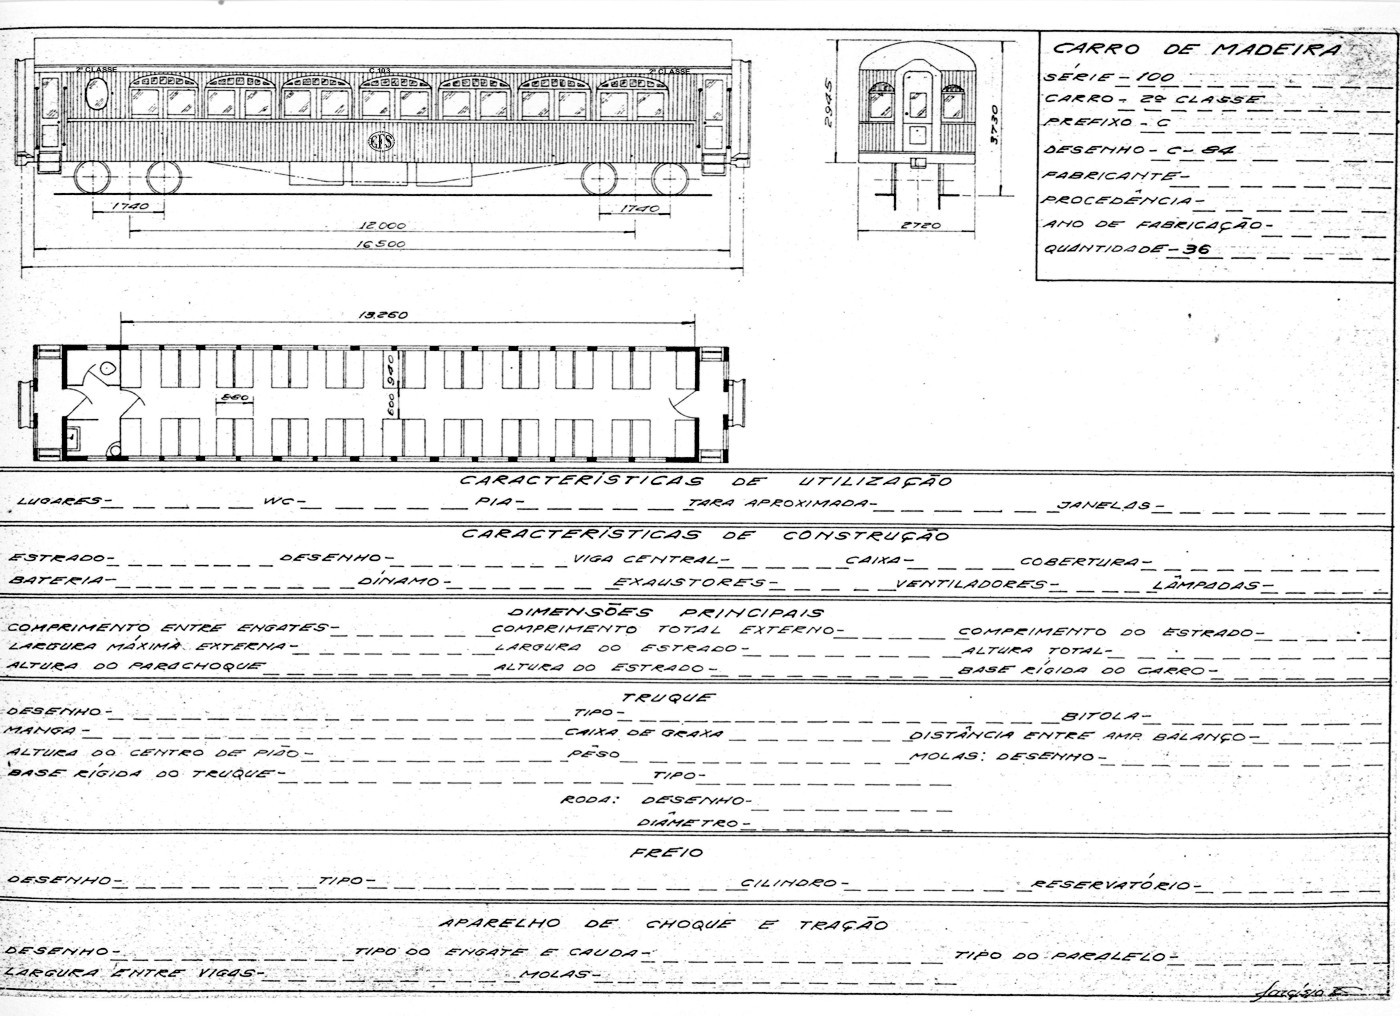 2ª CLASSE
C 103
2ª CLASSE
EFS
1740
1740
12.000
16.500
2945
3.730
2720
CARRO DE MADEIRA
SÉRIE - 100
CARRO - 2ª CLASSE
PREFIXO - C
DESENHO - C - 84
FABRICANTE -
PROCEDÊNCIA -
ANO DE FABRICAÇÃO -
QUANTIDADE - 36
13.260
940
600
CARACTERÍSTICAS DE UTILIZAÇÃO
LUGARES- WC- PIA- TARA APROXIMADA- JANELAS-
CARACTERÍSTICAS DE CONSTRUÇÃO
ESTRADO- DESENHO- VIGA CENTRAL- CAIXA- COBERTURA-
BATERIA- DÍNAMO- EXAUSTORES- VENTILADORES- LÂMPADAS-
DIMENSÕES PRINCIPAIS
COMPRIMENTO ENTRE ENGATES- COMPRIMENTO TOTAL EXTERNO- COMPRIMENTO DO ESTRADO-
LARGURA MÁXIMA EXTERNA- LARGURA DO ESTRADO- ALTURA TOTAL-
ALTURA DO PARACHOQUE ALTURA DO ESTRADO- BASE RÍGIDA DO CARRO-
TRUQUE
DESENHO- TIPO- BITOLA-
MANGA- CAIXA DE GRAXA DISTÂNCIA ENTRE AMP. BALANÇO-
ALTURA DO CENTRO DE PIÃO- PÊSO MOLAS: DESENHO-
BASE RÍGIDA DO TRUQUE- TIPO-
RODA: DESENHO-
DIÂMETRO-
FREIO
DESENHO- TIPO- CILINDRO- RESERVATÓRIO-
APARELHO DE CHOQUE E TRAÇÃO
DESENHO- TIPO DO ENGATE E CAUDA- TIPO DO PARALELO-
LARGURA ENTRE VIGAS- MOLAS-